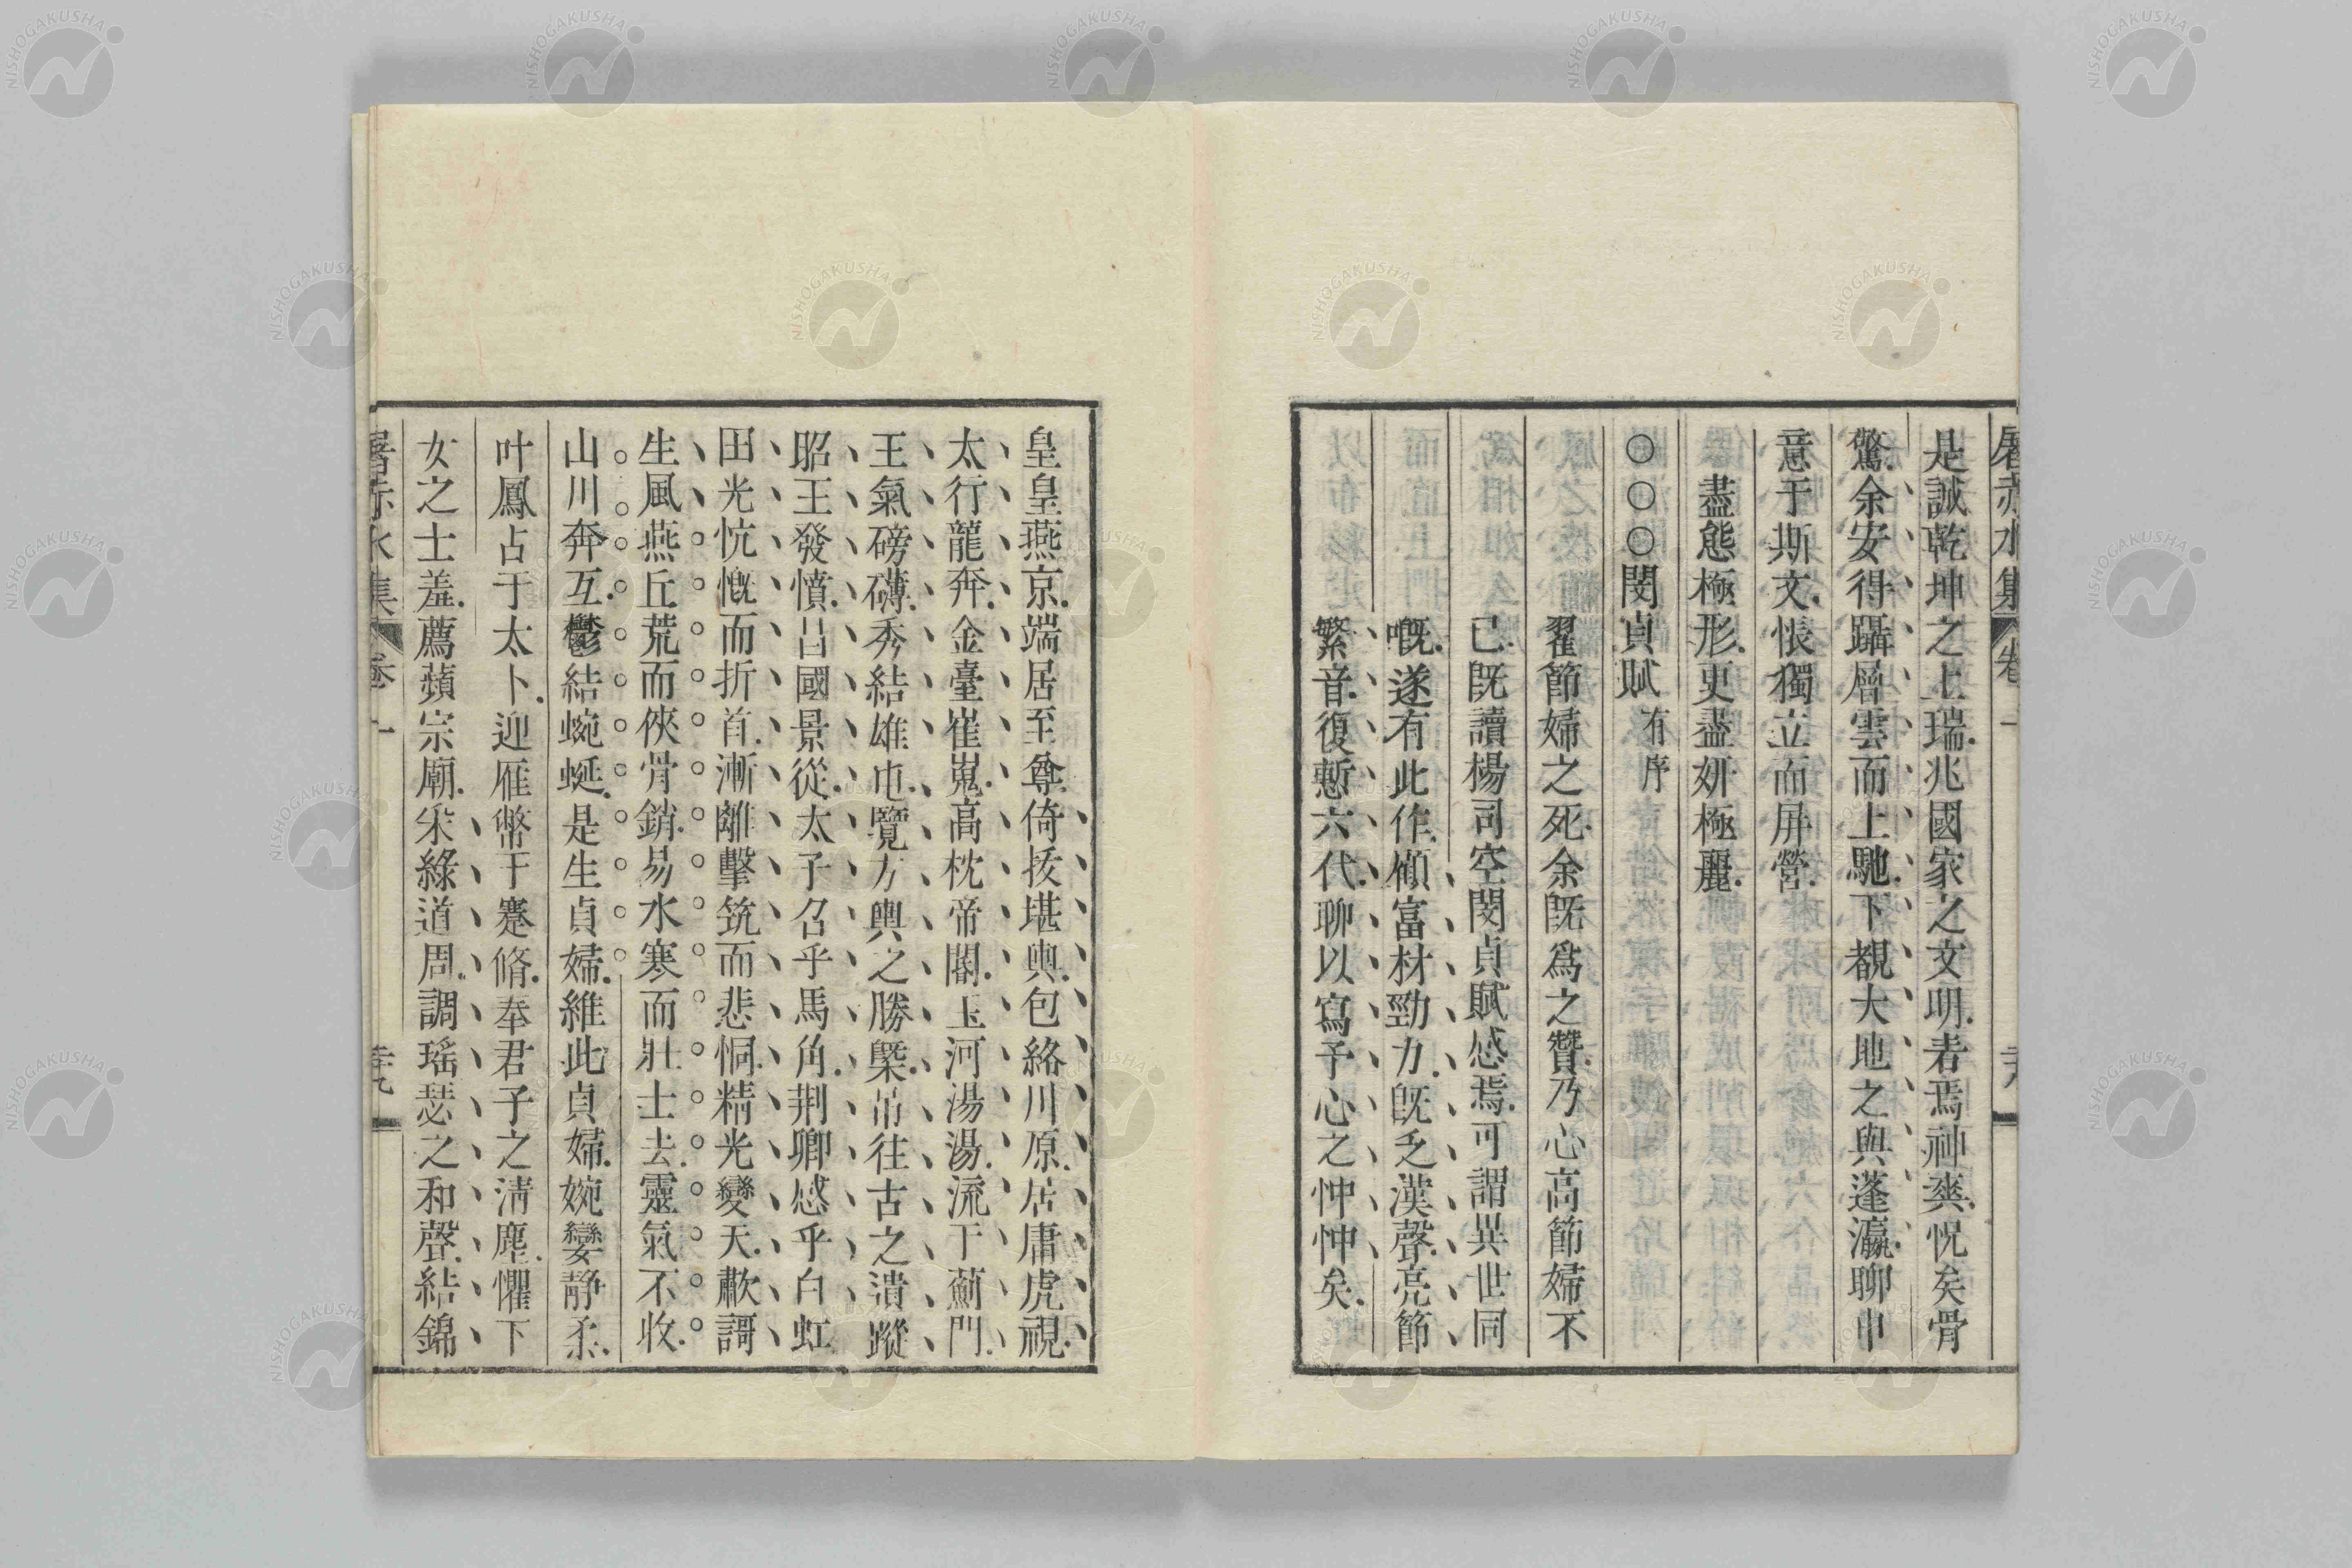 屠赤水集 卷一
是誠乾坤之上瑞兆國家之文明者焉神爽怳矣骨
驚余安得躡層雲而上馳下覩大地之與蓬瀛聊申
意于斯文悵獨立而屏營
盡態極形更盡妍極麗
○○○閔貞賦有序
翟節婦之死余既為之贊乃心高節婦不
已既讀楊司空閔貞賦感焉可謂異世同
嘅遂有此作顧富材勁力既乏漢聲亮節
繁音復慙六代聊以寫予心之忡忡矣
皇皇燕京端居至尊倚扆堪輿包絡川原居庸虎視
太行龍奔金臺崔嵬高枕帝閽玉河湯湯流于薊門
王氣磅礴秀結雄屯覽方輿之勝槩吊往古之潰蹤
昭王發憤昌國景從太子召乎馬角荆卿感乎白虹
田光忼慨而折首漸離擊筑而悲恫精光變天歊謌
生風燕丘荒而俠骨銷易水寒而壯士去靈氣不收
山川奔互鬱結蜿蜒是生貞婦維此貞婦婉孌靜柔
叶鳳占于太卜迎雁幣于蹇脩奉君子之清塵懼下
女之士羞薦蘋宗廟采綠道周調瑤瑟之和聲結錦
屠赤水集 卷一
NISHOGAKUSHA